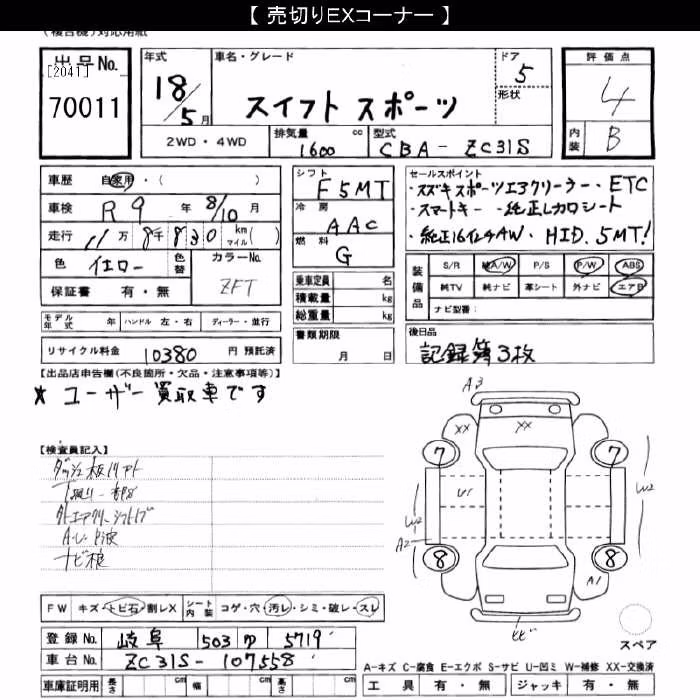 【 売切りEXコーナー 】
(複合機)対応用紙
出品No. [2041] 70011
年式 18/5月
車名・グレード スイフト スポーツ
ドア 5
形状
評価点 4
内装 B
2WD・4WD
排気量 1600 cc
型式 CBA-ZC31S
車歴 自家用・( )
車検 R9年 8/10月
走行 11万8千830 km マイル( )
色 イエロー
色替
カラーNo. ZFT
保証書 有・無
シフト F5MT
冷房 AAC
燃料 G
乗車定員 名
積載量 kg
総重量 kg
セールスポイント
・スズキスポーツエアクリーナー ・ETC
・スマートキー ・純正レカロシート
・純正16インチAW、HID、5MT!
装備品 S/R 純A/W P/S P/W ABS
純TV 純ナビ 革シート 外ナビ エアB
ナビ型番:
モデル年式 年 ハンドル 左・右 ディーラー・並行
リサイクル料金 10380 円 預託済
書類期限 月 日
後日品
記録簿3枚
【出品店申告欄(不良箇所・欠品・注意事項等)】
★ ユーザー買取車です
【検査員記入】
ナビ
FW キズ・トビ石・割レX シート内装 コゲ・穴・汚レ・シミ・破レ・スレ
登録No. 岐阜 503 5719
車台No. ZC31S-107558
車庫証明用 長さ cm 幅 cm 高さ cm
A3
XX XX
7 7
U1
W2 W2
A2
8 8
A1
スペア
A-キズ C-腐食 E-エクボ S-サビ U-凹ミ W-補修 XX-交換済
工具 有・無 ジャッキ 有・無